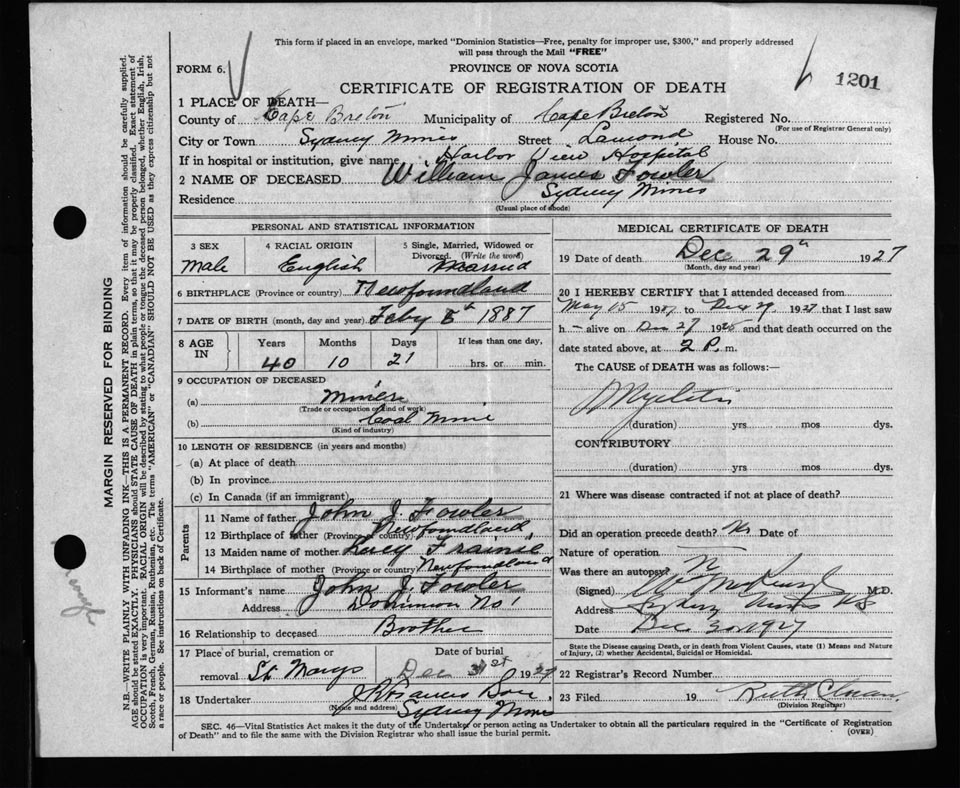 This form if placed in an envelope, marked "Dominion Statistics—Free, penalty for improper use, $300," and properly addressed
will pass through the Mail "FREE"
FORM 6.
PROVINCE OF NOVA SCOTIA
CERTIFICATE OF REGISTRATION OF DEATH
1201
1 PLACE OF DEATH—
County of Cape Breton Municipality of Cape Breton Registered No.
(For use of Registrar General only)
City or Town Sydney Mines Street Lamond House No.
If in hospital or institution, give name Harbor View Hospital
2 NAME OF DECEASED William James Fowler
Residence Sydney Mines
(Usual place of abode)
PERSONAL AND STATISTICAL INFORMATION
3 SEX Male
4 RACIAL ORIGIN English
5 Single, Married, Widowed or Divorced. (Write the word) Married
6 BIRTHPLACE (Province or country) Newfoundland
7 DATE OF BIRTH (month, day and year) Feby 8th 1887
8 AGE IN
Years Months Days If less than one day,
40 10 21 hrs. or min.
9 OCCUPATION OF DECEASED
(a) Miner
(Trade or occupation or kind of work)
(b) Coal Mine
(Kind of industry)
10 LENGTH OF RESIDENCE (in years and months)
(a) At place of death
(b) In province
(c) In Canada (if an immigrant)
Parents
11 Name of father John J. Fowler
12 Birthplace of father (Province or country) Newfoundland
13 Maiden name of mother Lucy
14 Birthplace of mother (Province or country) Newfoundland
15 Informant's name John J. Fowler
Address Dominion No 1
16 Relationship to deceased Brother
17 Place of burial, cremation or removal St Marys
Date of burial
Dec 31st 1927
18 Undertaker
(Name and address) Sydney Mines
MEDICAL CERTIFICATE OF DEATH
19 Date of death Dec 29th 1927
(Month, day and year)
20 I HEREBY CERTIFY that I attended deceased from
May 15 1927 to Dec 29 1927 that I last saw
h alive on Dec 27 19 and that death occurred on
date stated above, at 2 P. m.
The CAUSE of DEATH was as follows:—
Myelitis
(duration) yrs mos dys.
CONTRIBUTORY
(duration) yrs mos dys.
21 Where was disease contracted if not at place of death?
Did an operation precede death? No Date of
Nature of operation
Was there an autopsy?
(Signed) M.D.
Address Sydney Mines NS
Date Dec 30 1927
State the Disease causing Death, or in death from Violent Causes, state (1) Means and Nature
of Injury, (2) whether Accidental, Suicidal or Homicidal.
22 Registrar's Record Number
23 Filed 19 Ruth
(Division Registrar)
SEC. 46—Vital Statistics Act makes it the duty of the Undertaker or person acting as Undertaker to obtain all the particulars required in the "Certificate of Registration
of Death" and to file the same with the Division Registrar who shall issue the burial permit.
(OVER)
MARGIN RESERVED FOR BINDING
N.B.—WRITE PLAINLY WITH UNFADING INK—THIS IS A PERMANENT RECORD. Every item of information should be carefully supplied.
AGE should be stated EXACTLY. PHYSICIANS should STATE CAUSE OF DEATH in plain terms, so that it may be properly classified. Exact statement of
OCCUPATION is very important. RACIAL ORIGIN will be described by stating to what people or race the deceased person belonged, whether English, Irish,
Scotch, French, German, Russian, Ruthenian, etc. The terms "AMERICAN" or "CANADIAN" SHOULD NOT BE USED as they express citizenship but not
a race or people. See instructions on back of Certificate.